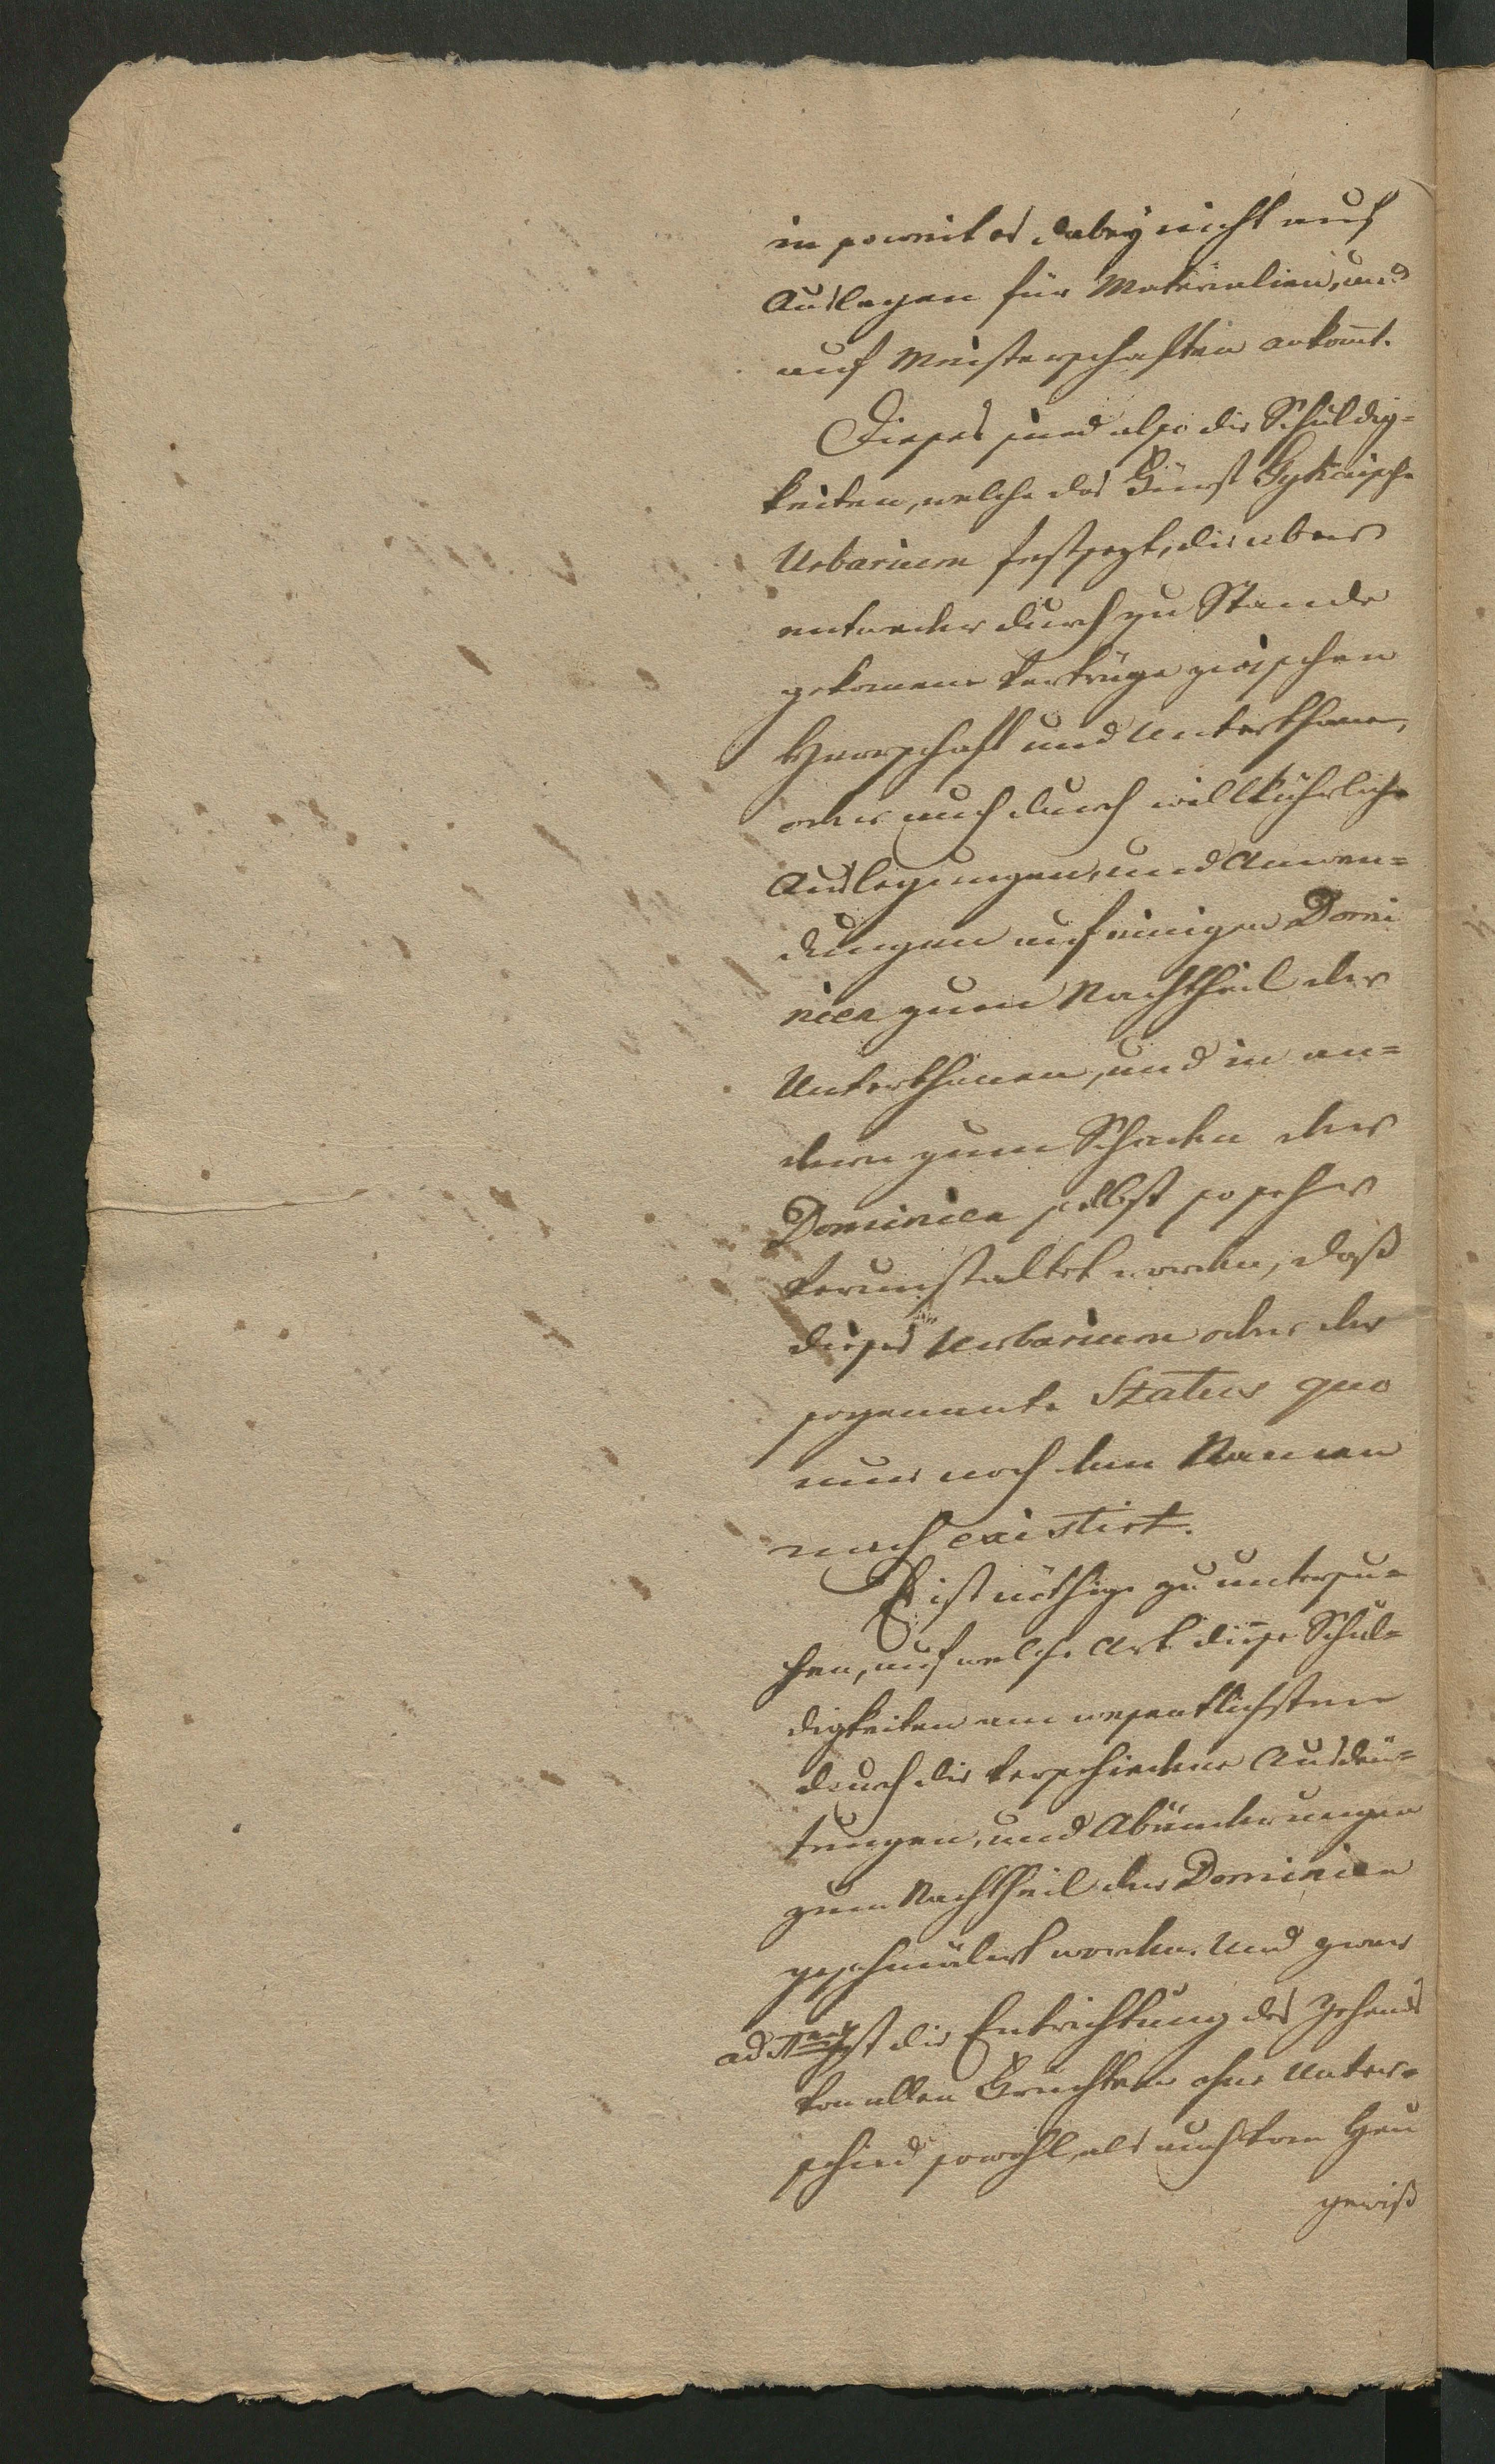 in soweit es dabey nicht auf
Auslagen für Materialien, und
auf Meisterschaften ankomt.
Dieses sind also die Schuldig=
keiten, welche das Fürst Gykaische
Urbarium festsezt, die aber
entweder durch zu Stande
gekomene Verträge zwischen
Herrschaft und Unterthanen,
oder auch durch willkührliche
Auslegungen, und Anwen=
dungen auf einigen Domi
nien zum Nachtheil der
Unterthanen, und in an=
dern zum Schaden der
Dominien selbst so sehr
verunstaltet worden, daß
dieses Urbarium oder der
sogenannte Status quo
nur noch dem Namen
nach existirt.
Es ist nöthig zu untersu=
chen, auf welche Art diese Schul=
digkeiten am wesentlichsten
durch die verschiedene Ausdeu=
tungen, und Abänderungen
zum Nachtheil der Dominien
geschmälert worden. Und zwar
ad Ist die Entrichtung des Zehends
von allen Früchten ohne Unter=
schied sowohl, als auch vom Heu
gewiß